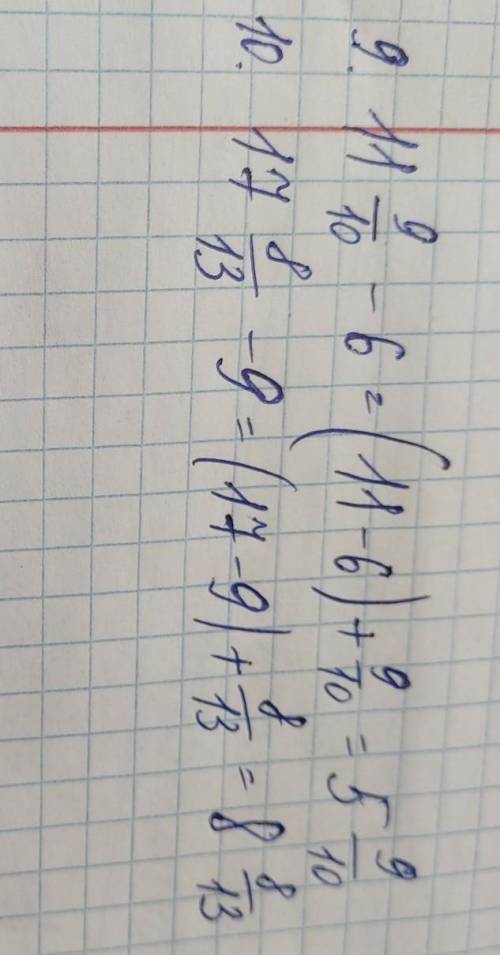 9. 11 9/10 - 6 = (11 - 6) + 9/10 = 5 9/10
10. 17 8/13 - 9 = (17 - 9) + 8/13 = 8 8/13